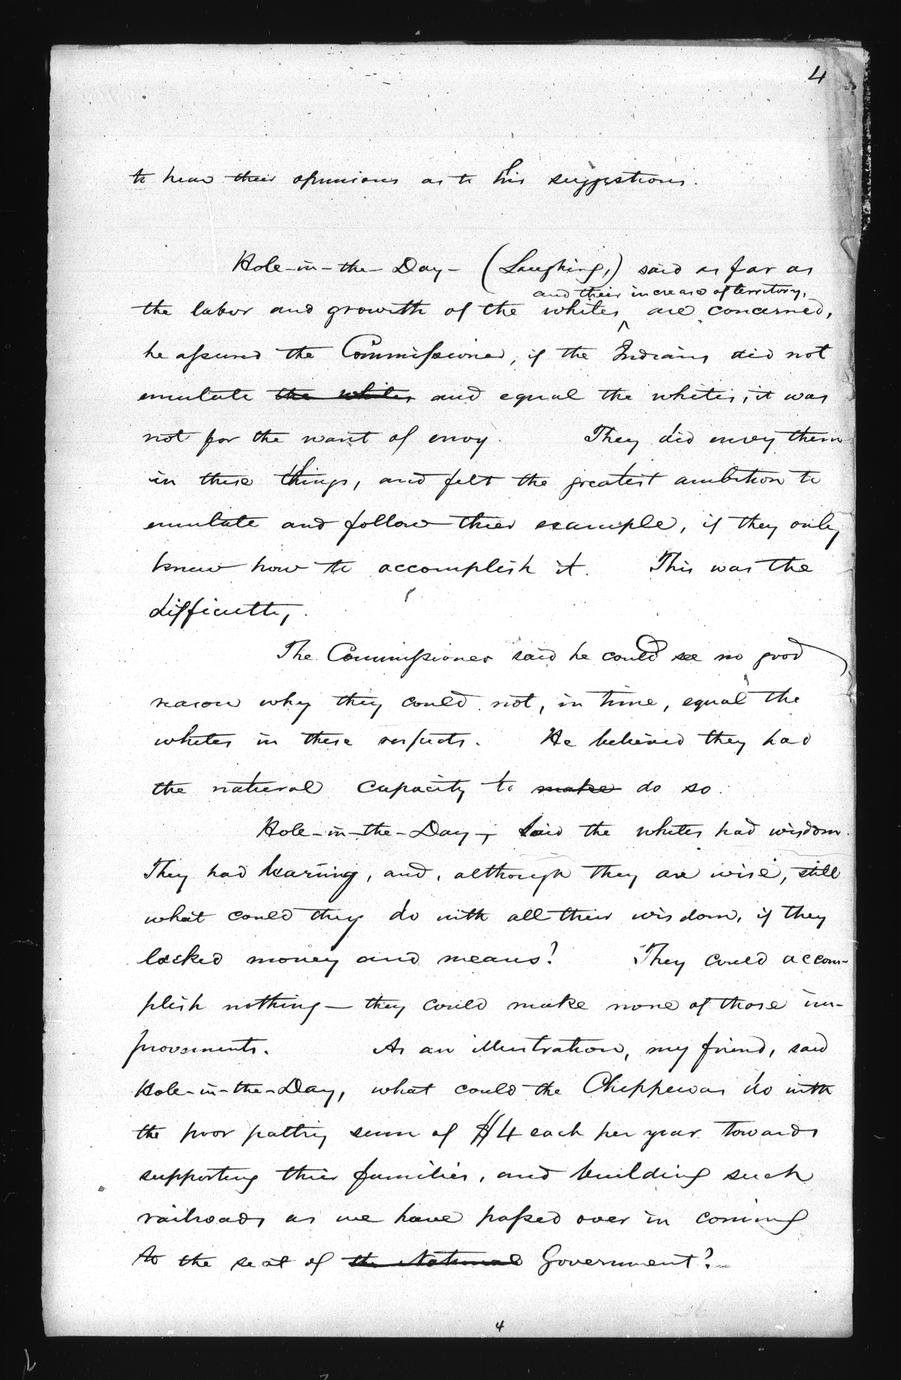 4
to hear their opinions as to his suggestions.
Hole-in-the-Day- (Laughing,) said as far as
and their increase of territory,
the labor and growth of the whites ^ are concerned,
he assured the Commissioner, if the Indians did not
emulate the whites and equal the whites, it was
not for the want of envy. They did envy them
in these things, and felt the greatest ambition to
emulate and follow their example, if they only
knew how to accomplish it. This was the
difficulty.
The Commissioner said he could see no good
reason why they could not, in time, equal the
whites in these respects. He believed they had
the natural capacity to make do so.
Hole-in-the-Day, said the whites had wisdom.
They had learning, and, although they are wise, still
what could they do with all their wisdom, if they
lacked money and means? They could accom-
plish nothing — they could make none of those im-
provements. As an illustration, my friend, said
Hole-in-the-Day, what could the Chippewas do with
the poor paltry sum of $4 each per year towards
supporting their families, and building such
railroads as we have passed over in coming
to the seat of the National Government?
4